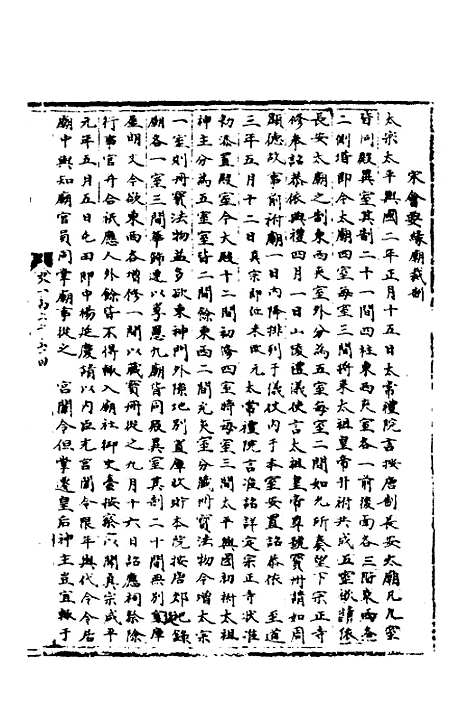 宋會要緣廟裁制
太宗太平興國二年正月十五日太常禮院言按唐制長安太廟凡九室
皆同殿異室其制二十一間四柱東西夾室各一前後面各三階東西各
二側堦即今太廟四室每室三間將來太祖皇帝升祔共成五室欲請依
長安太廟之制東西夾室外分為五室每室二間如允所奏望下宗正寺
修奉詔恭依興禮四月一日山陵禮儀使言太祖皇帝尊號寶冊請如周
顯德故事前祔廟一日內降排列于儀仗內于本室安置詔恭依 至道
三年五月十二日真宗即位未改元太常禮院言准詔詳定宗正寺狀准
初添置殿室今大殿十二間初海四室時每室三間太平興國初祔太祖
神主分為五室室皆二間餘東西二間充夾室分藏冊寶法物今增太宗
一室則冊寶法物益多欲東神門外隙地別置庫収貯本院按唐郊祀錄
廟各一室三間華飾連以尊恩九廟皆同殿異室其制二十間無別置庫
屋明文今欲東西各增修一間以藏寶冊從之九月十六日詔應祠祭除
行事官并合祇應人外餘皆不得輒入廟社御史臺按察以聞真宗咸平
元年五月五日屯田郎中楊延慶請以內臣充宮闈令限年與代令令居
廟中與知廟官員同掌廟事從之 宮闈令但掌遷皇后神主豈宜輒于